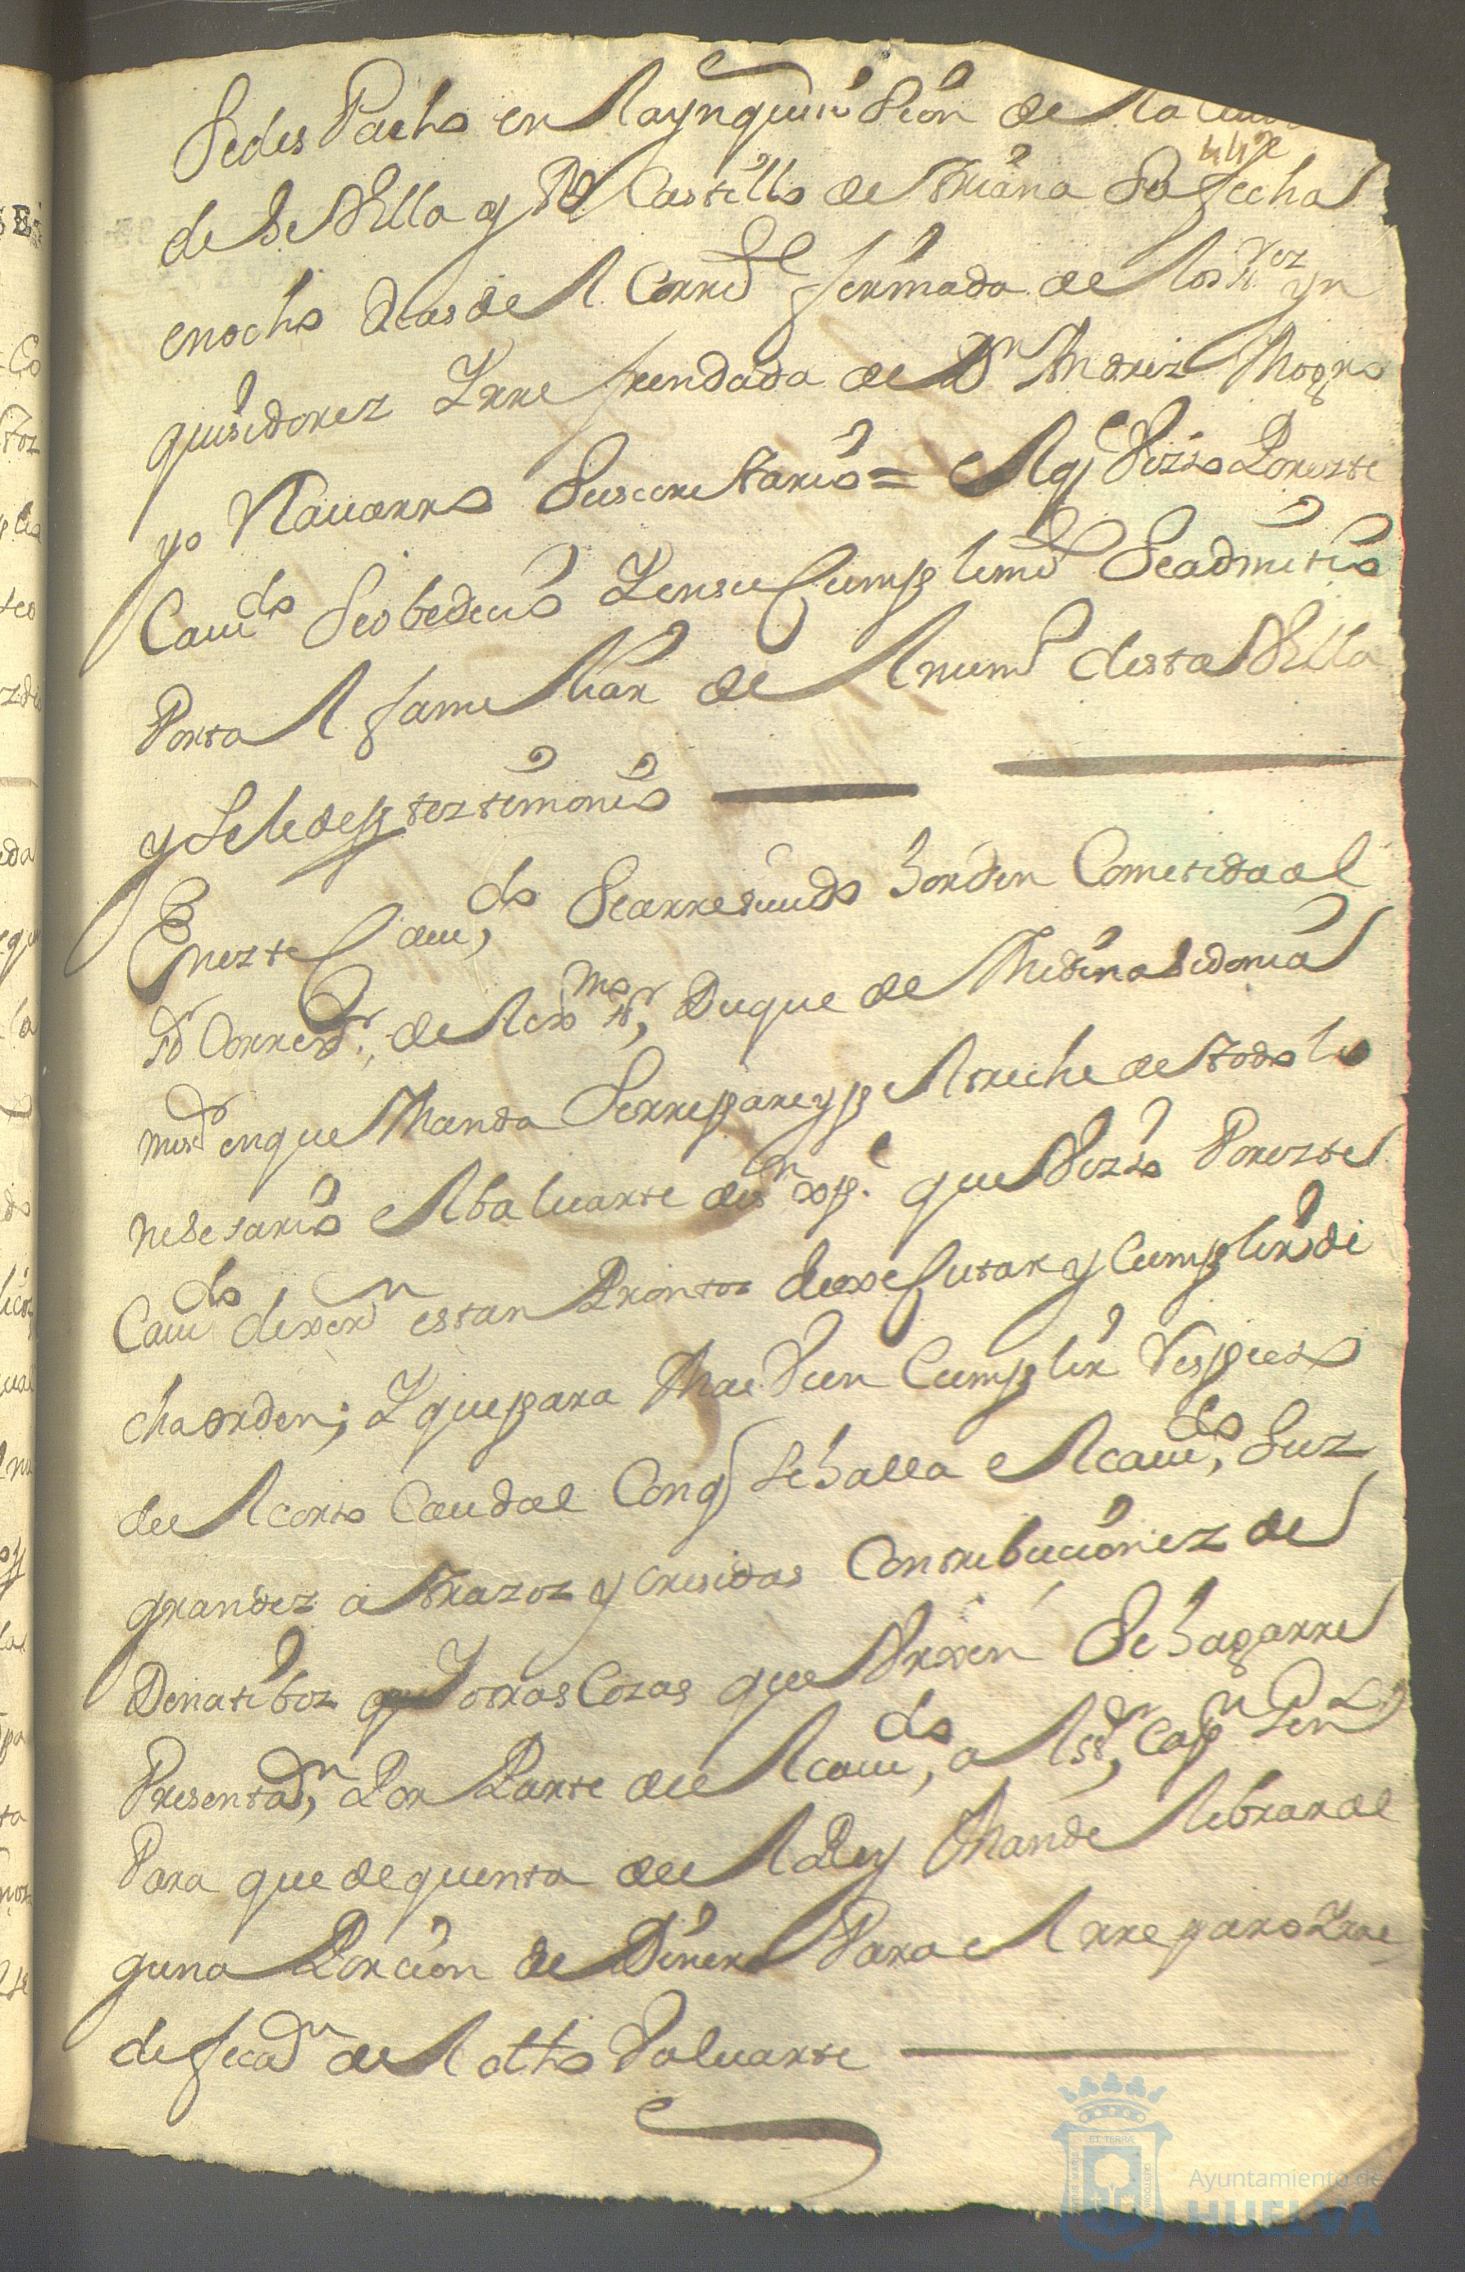 Sedes Pacho en la ynquisision de la
442
de Sevilla y Rl Castillo de triana Su fecha
enocho dias del Corrte firmada de los Srez yn
quisidorez Y rrefrendada de Dn Andrez Moqro
yo Nauarro Susecretario = el q Visto Porezte
Cauido Seobedecio Y ensu Cumplimto Seadmitio
Porta l familiar del numo desta Villa
y Seledesp teztimonio
Enezte Cauido, Searresiuido horden Cometida al
Sor Correxor, del exmo Sr, Duque de Medinasidonia
mi sr enque Manda Serrepare y peltreche detodo lo
nesesario elbaluarte de sn xpl. que Vizto Porezte
Cauido dixeron estan Prontos deexecutar y Cumplir di
cha orden; Y quepara Mas vien Cumplir Respecto
del corto Caudal Conq Sehalla el cauido, Suz
grandez atrazoz y cresidas Contribucionez de
Donatiboz y otras Cozas que Vrxen Se haga rre
Presentaon, Por Parte del cauido, a l Sr, Capn Genl
Para que dequenta del Rey Mande librar al
guna Porcion de Dinero Para el rreparo Y rre
deficaon del dtho Valuarte
Ayuntamiento de
HUELVA